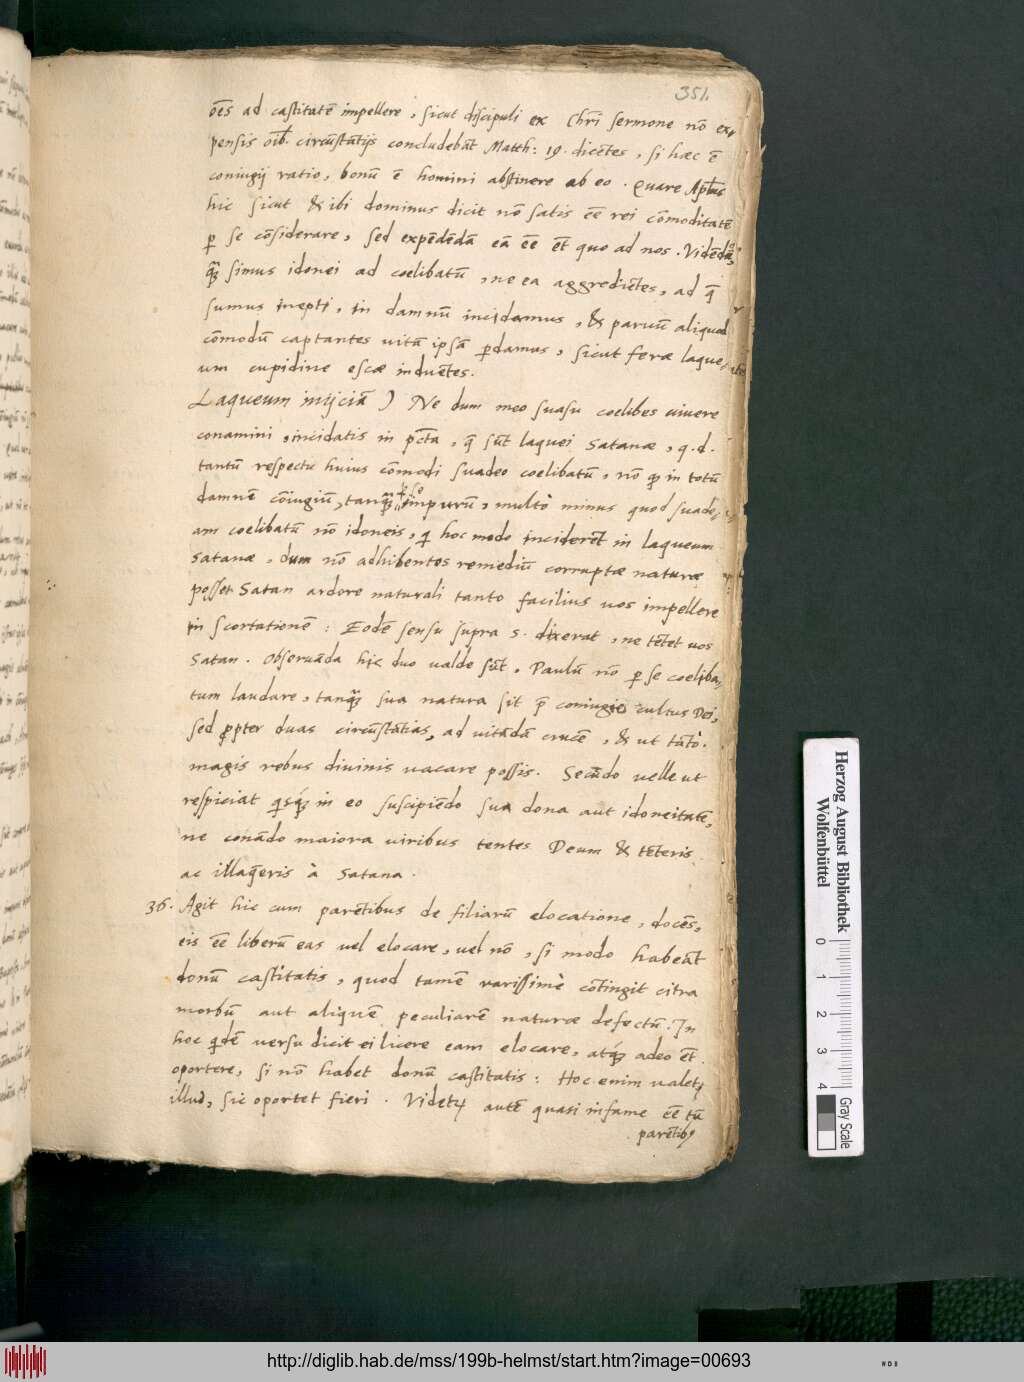 351.
oēs ad castitatē impellere, sicut discipuli ex Chr̄i sermone nō ex⸗
pensis oīb. circūstātijs concludebāt Matth: 19. dicētes, si haec ē
coniugij ratio, bonū ē homini abstinere ab eo. Quare Apl̄us
hic sicut & ibi dominus dicit nō satis eē rei cōmoditatē
ꝑ se cōsiderare, sed expēdēdā eā eē et quo ad nos. Vidēdū
simus idonei ad coelibatū, ne ea aggrediētes, ad q̄
sumus inepti, in damnū incidamus, & paruū aliquod
cōmodū captantes uitā ipsā ꝑdamus, sicut ferae laque⸗
um cupidine escae induētes.
Laqueum inijciā) Ne dum meo suasu coelibes uiuere
conamini, incidatis in pctā, q̄ sūt laquei Satanae, q.d.
tantū respectu huius cōmodi suadeo coelibatū, nō ꝙ in totū
damnē cōiugiū, tanꝗ̄ impurū, multò minus quod suade⸗
am coelibatū nō idoneis, qi hoc modo inciderēt in laqueum
Satanae, dum nō adhibentes remediū corruptae naturae
posset Satan ardore naturali tanto facilius uos impellere
in scortationē: Eodē sensu supra 5. dixerat, ne tētet uos
Satan. Obseruāda hic duo ualde sūt, Paulū nō ꝑ se coeliba⸗
tum laudare, tanꝗ̄ sua natura sit p̄ coniugio cultus Dei,
sed ꝓpter duas circūstātias, ad uitādā crucē, & ut tātò
magis rebus diuinis uacare possis. Secūdo uelle ut
respiciat qisq́ in eo suscipiēdo sua dona aut idoneitatē,
ne conādo maiora uiribus tentes Deum & tēteris
ac illaq̄eris à Satana.
36. Agit hic cum parētibus de filiarū elocatione, docēs,
eis eē liberū eas uel elocare, uel nō, si modo habeāt
donū castitatis, quod tamē rarissimè cōtingit citra
morbū aut aliquē peculiarē naturae defectū. In
hoc qidē uersu dicit ei licere eam elocare, atq́ adeo et
oportere, si nō habet donū castitatis: Hoc enim ualet
illud, sic oportet fieri. Videtꝝ autē quasi infame eē tū
parētibꝰ
Herzog August Bibliothek
Wolfenbüttel
0 1 2 3 4
Gray Scale
http://diglib.hab.de/mss/199b-helmst/start.htm?image=00693